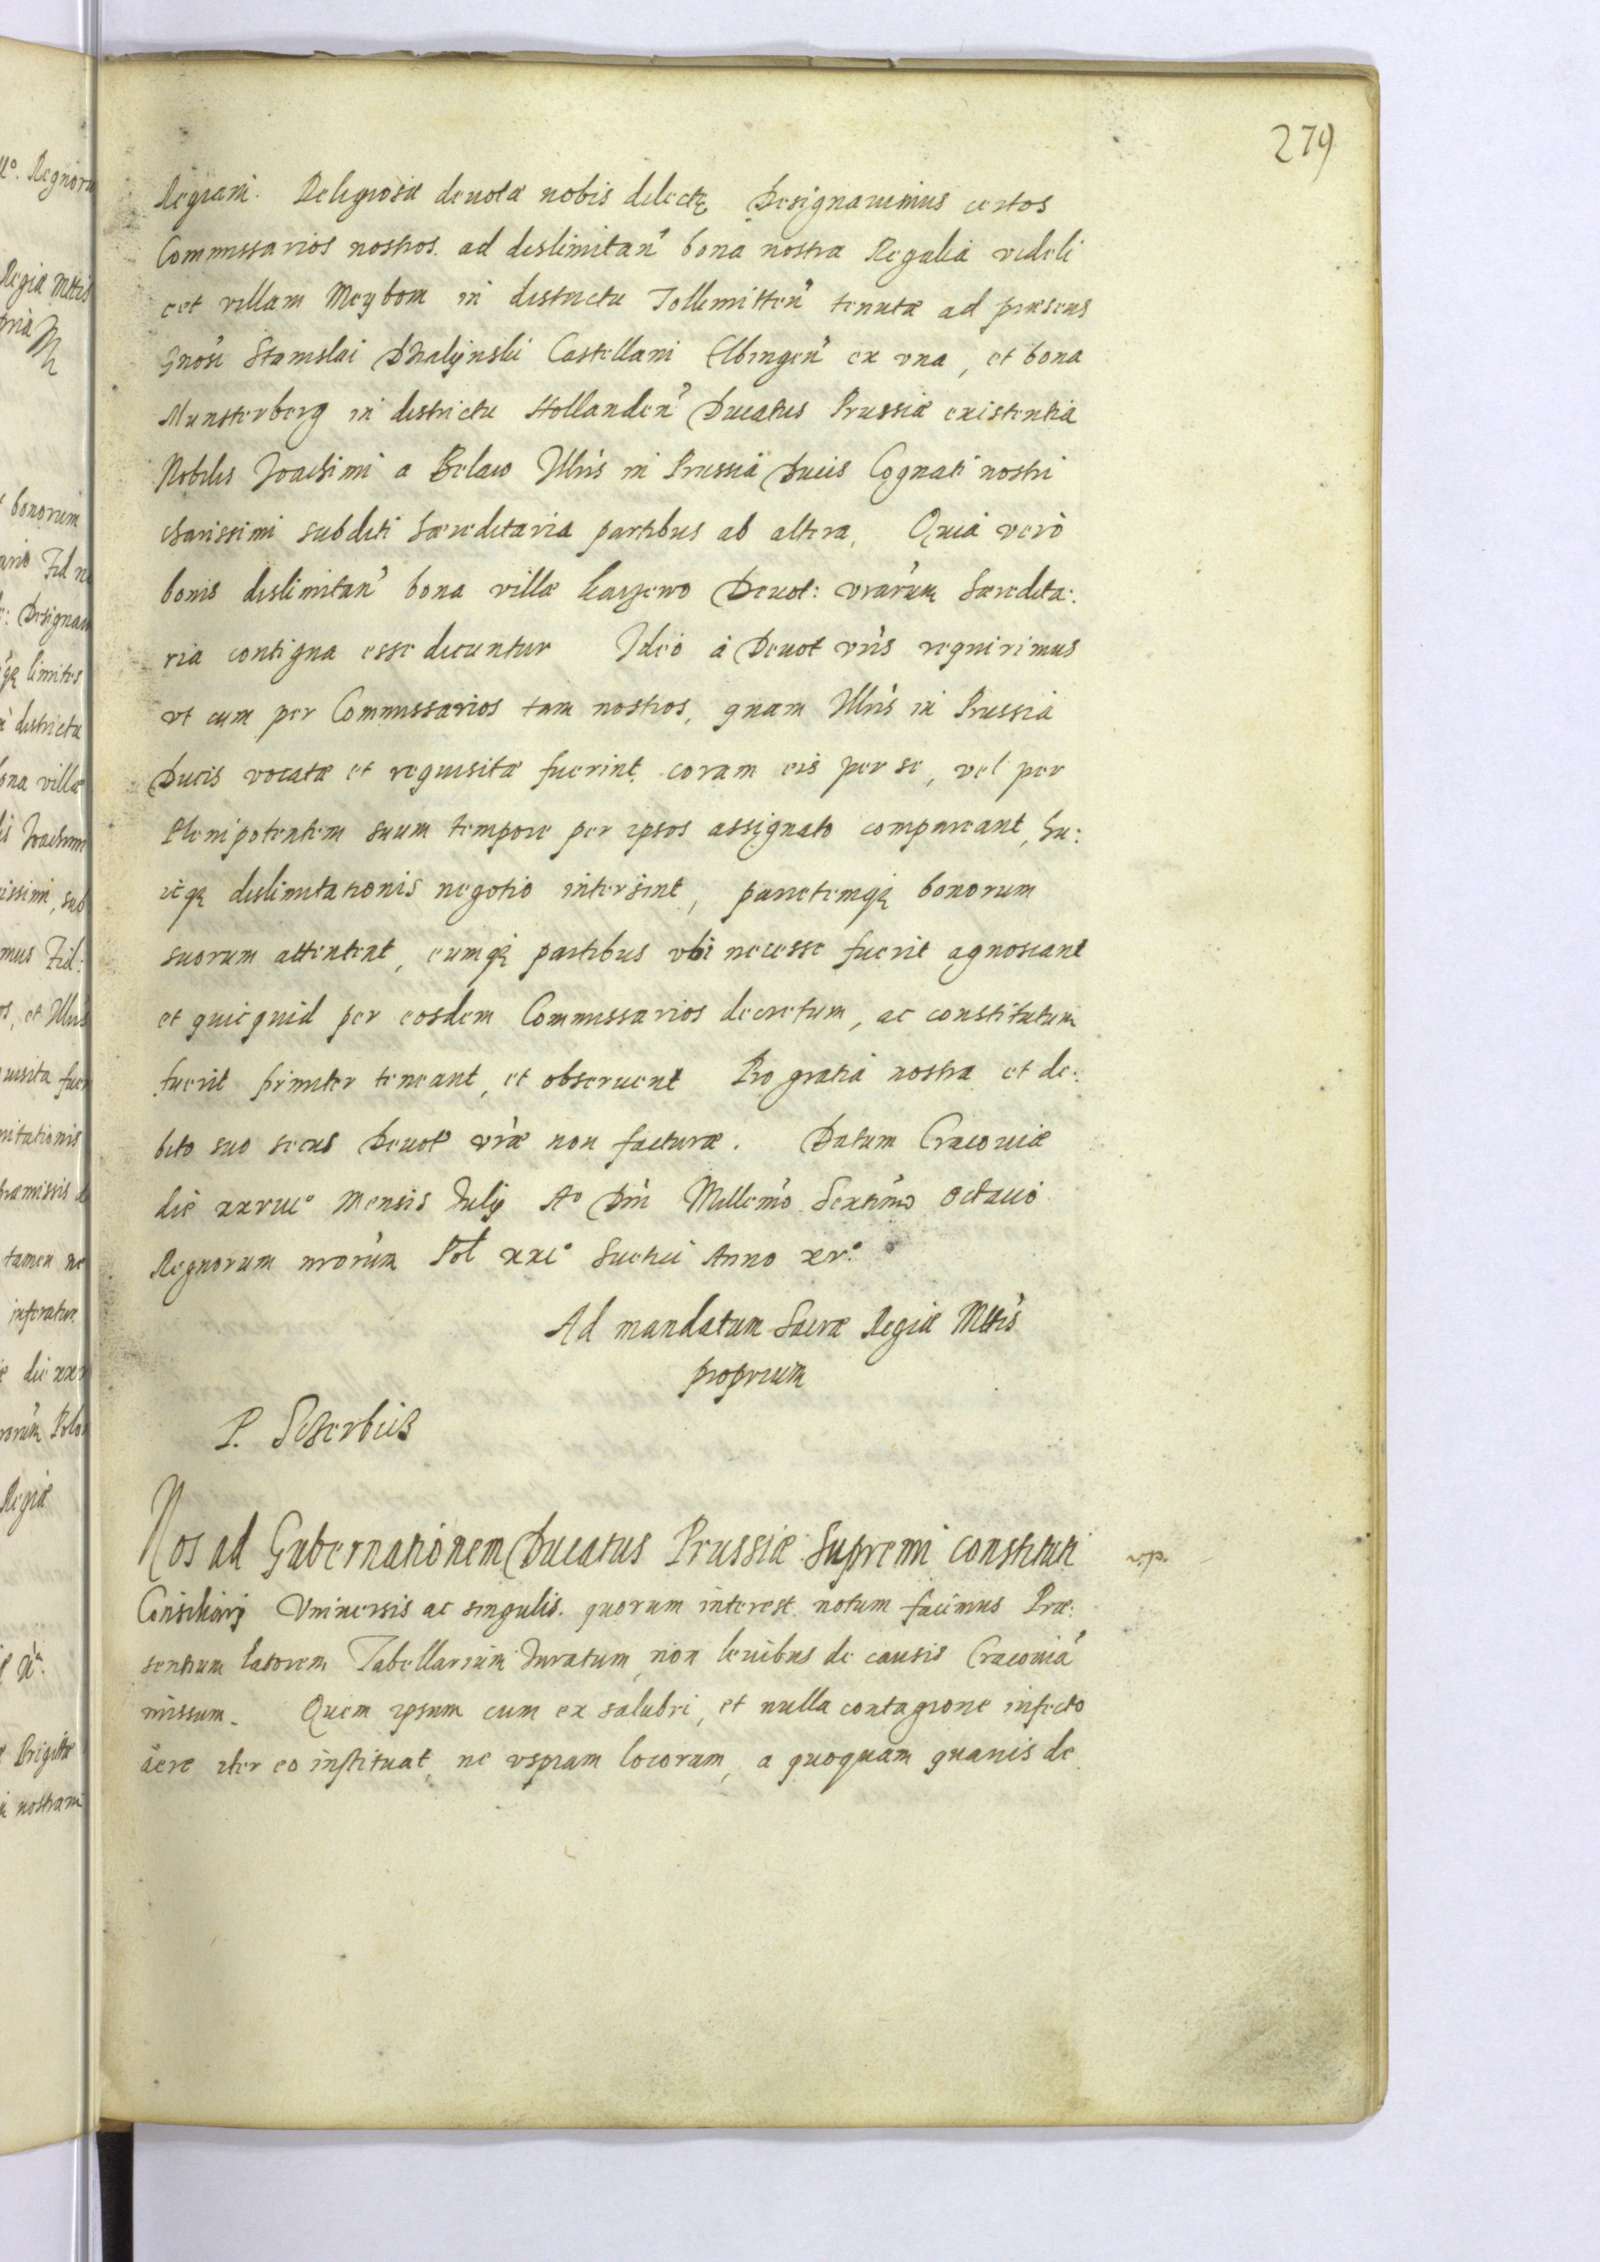 279
Regiam. Religiosæ deuotæ nobis dilectę Designauimus certos
Commissarios nostros ad dislimitan' bona nostra Regalia videli
cet villam Meybom in districtu Tollimitten' tenutæ ad præsens
Gnosi Stanislai Dzialijnski Castellani Elbingen' ex vna, et bona
Munsterberg in districtu Hollanden' Ducatus Prussiæ existentia
Nobilis Joachimi a Belaw Illris in Prussia Ducis Cognati nostri
charissimi subditi hæreditaria partibus ab altera, Quia verò
bonis dislimitan' bona villæ Deuot: vrarum hæredita:
ria contigua esse dicuntur Ideò à Deuot vris requirimus
vt cum per Commissarios tam nostros, quam Illris in Prussia
Ducis vocatæ et requisitæ fuerint coram eis per se, vel per
Plenipotentem suum tempore per ipsos assignato compareant, hu:
icq; dislimitationis negotio intersint, parietemq; bonorum
suorum attentent, eumq; partibus vbi necesse fuerit agnoscant
et quicquid per eosdem Commissarios decretum, ac constitutum
fuerit firmiter teneant, et obseruent Pro gratia nostra et de:
bito suo secus Deuot vræ non facturæ. Datum Cracouiæ
die xxviiᵒ Mensis Julij Aᵒ Dni Millemo Sextmo octauo
Regnorum nrorum Pol xxiᵒ Suetici Anno xvᵒ
Ad mandatum Sacræ Regiæ Mttis
proprium
P. Sczerbicz
Nos ad Gubernationem Ducatus Prussiæ Supremi constituti
Consiliarij Vniuersis ac singulis quorum interest notum facimus Præ:
sentium latorem Tabellarium Juratum non leuibus de causis Cracouia'
missum. Quem ipsum cum ex salubri, et nulla contagione infecto
äere iter eo instituat, ne vspiam locorum, a quoquam quauis de